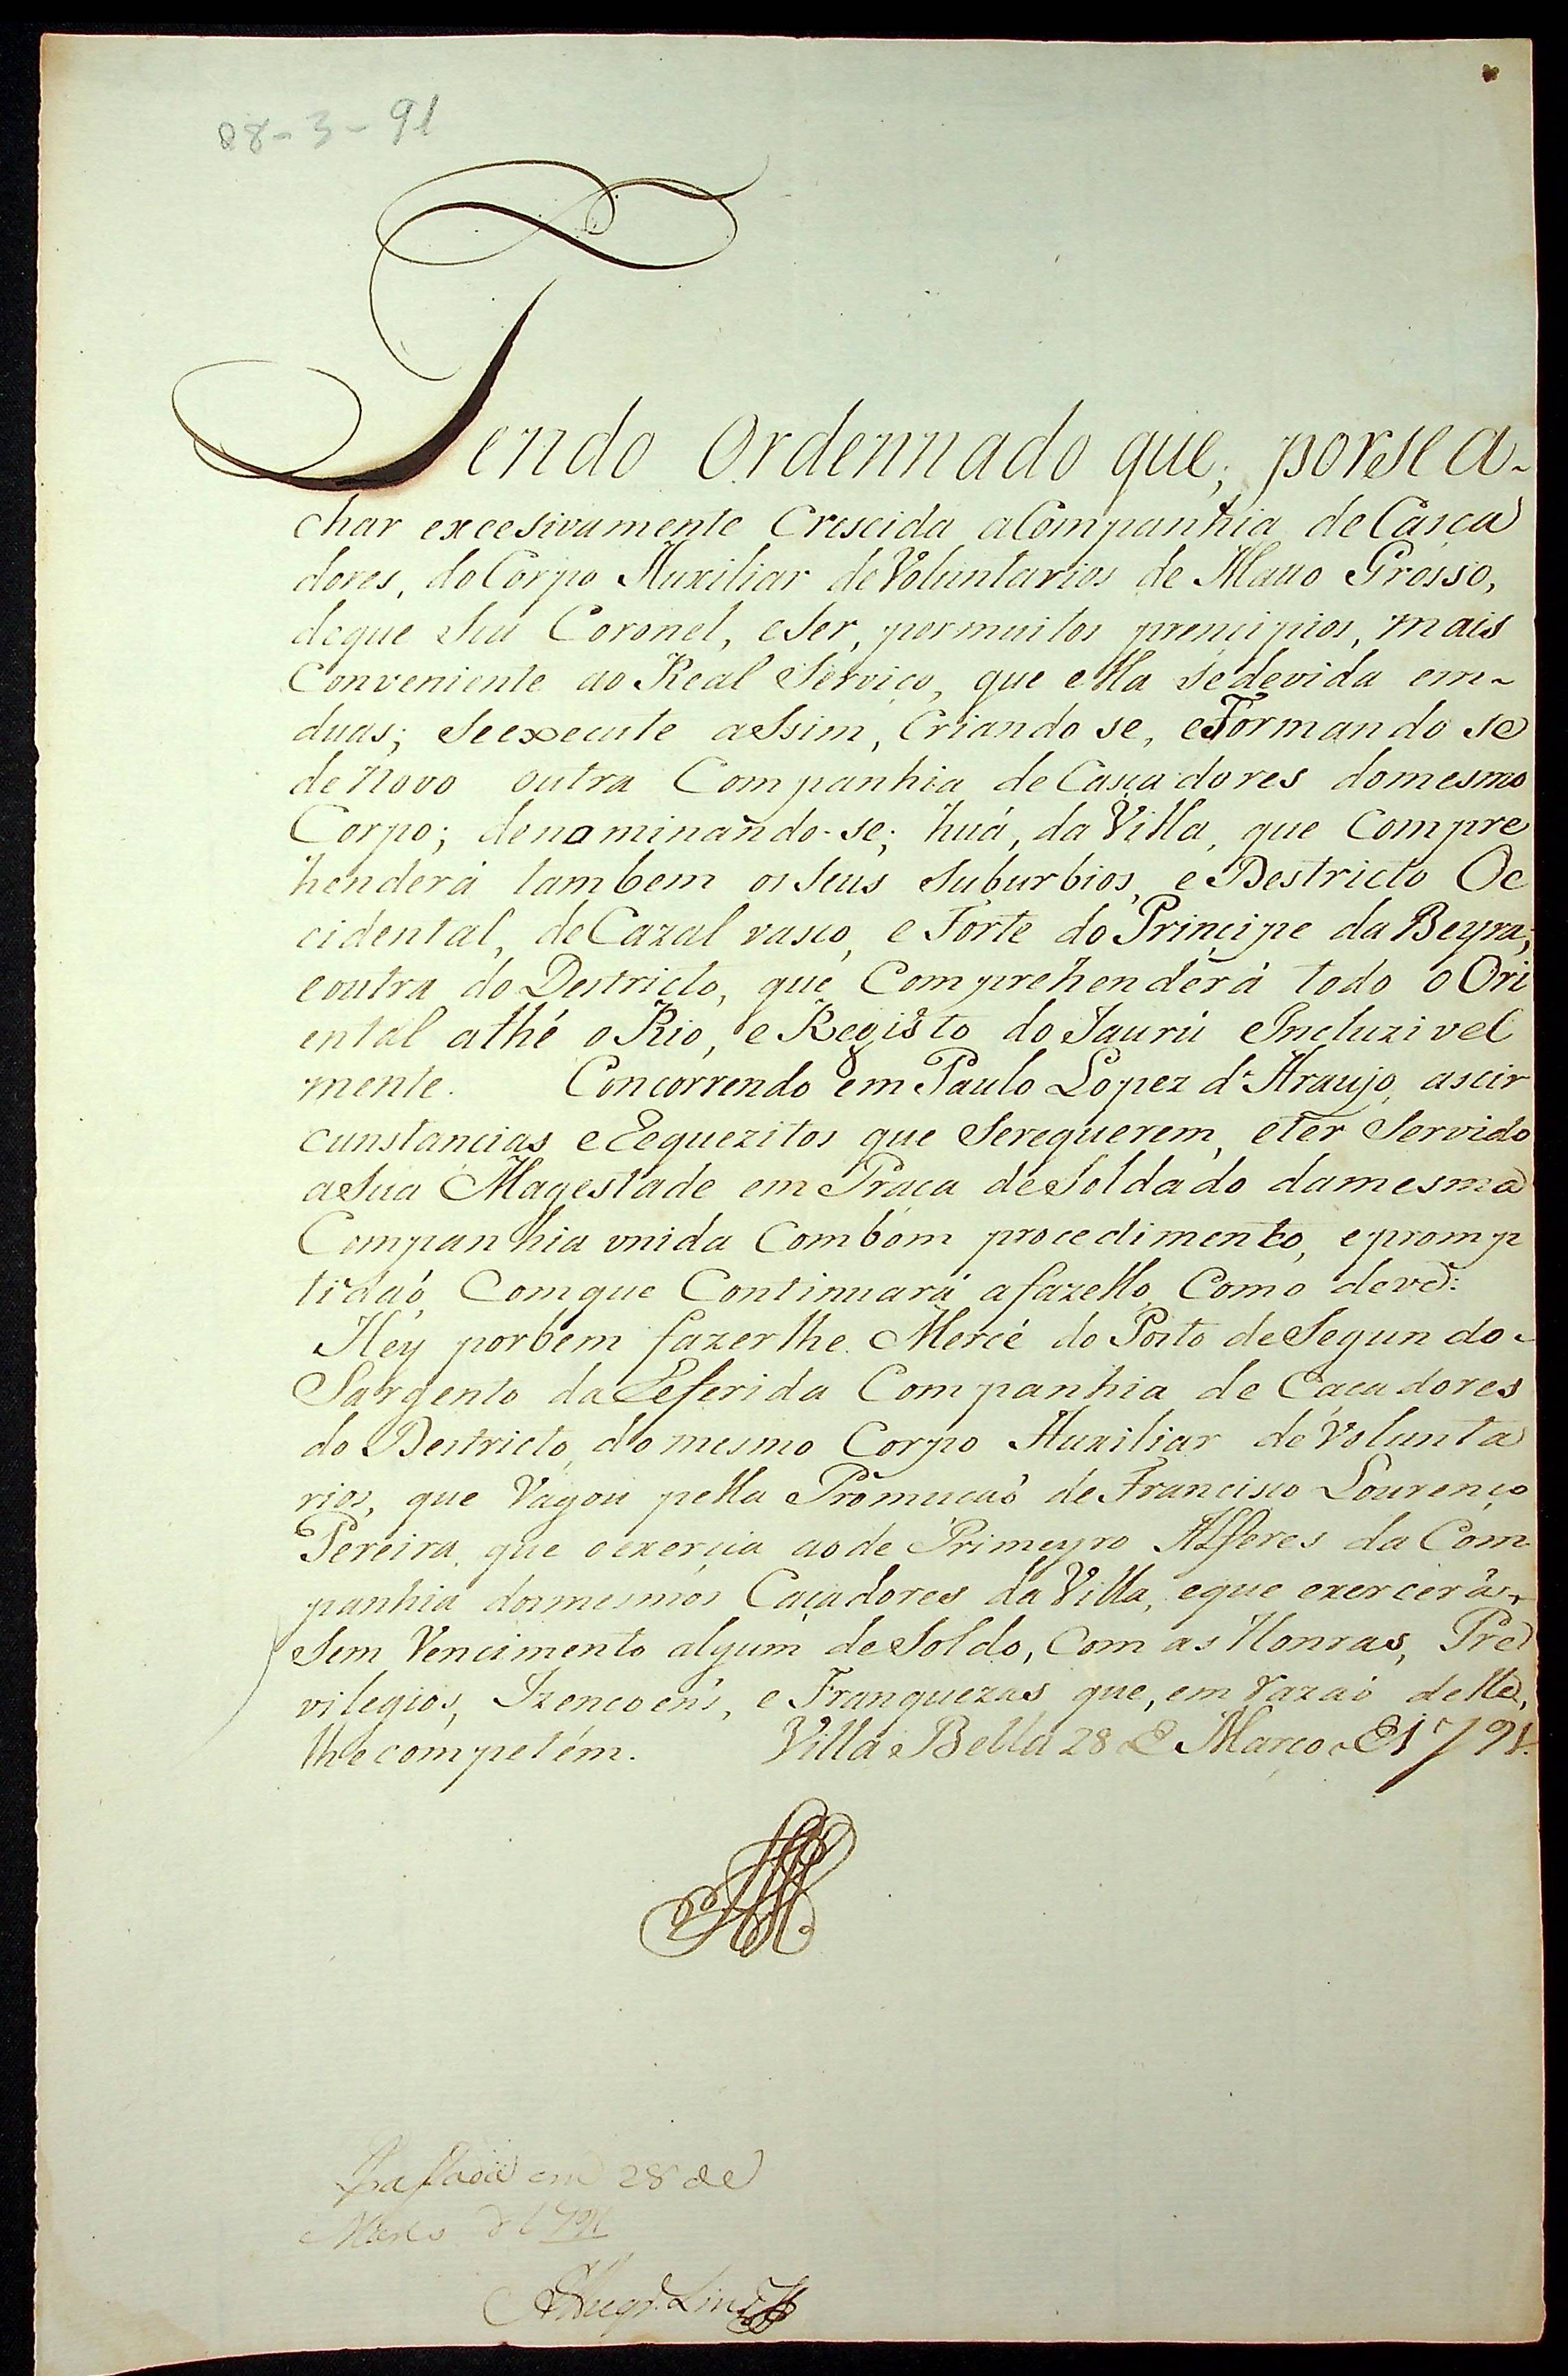 28-3-91
Tendo Ordennado que, porse a-
char excesivamente Crescida aCompanhia de Casça
dores, do Corpo Auxiliar de Voluntarios de Matto Grosso,
deque Sou Coronel, eSer, pormuitos prencipios, mais
Conveniente ao Real Serviço, que ella sedevida em-
duas; Seexecute aSsim, Criando se, eFormando se
de Novo outra Companhia de Casçadores domesmo
Corpo; denominando-se; huá, da Villa, que Compre
henderá tambem os Seus Suburbios, e Destricto Oc
cidental, de Cazal vasco, e Forte do Principe da Beyra;
eoutra do Destricto, que Comprehenderá todo o Ori
ental athé o Rio, e Registo do Jaurú eIncluzivel
mente. Concorrendo em Paulo Lopez d'Araujo, ascir
cunstancias e Requezitos que Serequerem, eter Servido
aSua Magestade em Praça deSoldado damesma
Companhia unida Combom procedimento, epromp
tidaó, Comque Continuará afazello, Como deve:
Hey porbem fazerlhe Mercê do Posto de Segundo-
Sargento da Referida Companhia de Caçadores
do Destricto, do mesmo Corpo Auxiliar de Volunta
rios, que Vagou pella Promuçaó de Francisco Lourenço
Pereira, que oexercia aode Primeyro Alferes da Com-
panhia dosmesmos Caçadores da Villa, eque exercerá,
Sem Vencimento algum deSoldo, Com as Honras, Pre
vilegios, Izençoens, e Franquezas que, em razaó delle,
lhecompetem. Villa Bella 28 de Março de 1791.
em 28 de